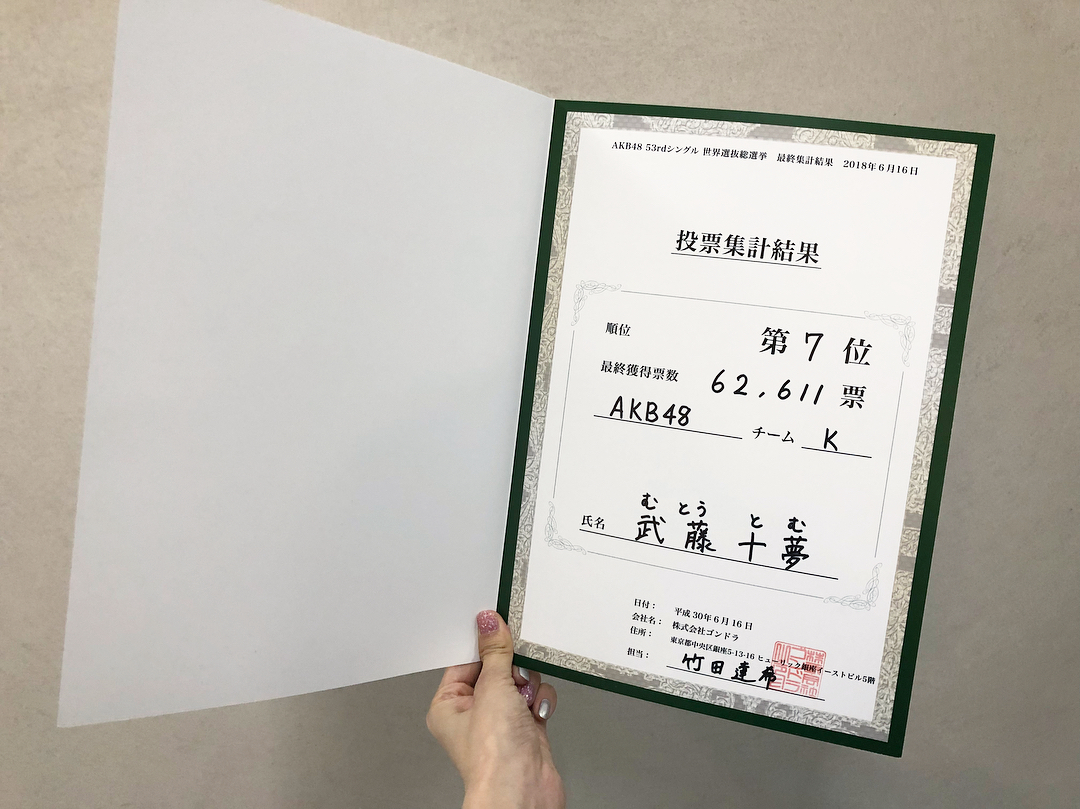 AKB48 53rdシングル 世界選抜総選挙 最終集計結果 2018年6月16日
投票集計結果
順位 第7位
最終獲得票数 62,611票
AKB48 チームK
むとう とむ
氏名 武藤 十夢
日付： 平成30年6月16日
会社名： 株式会社ゴンドラ
住所： 東京都中央区銀座5-13-16 ヒューリック銀座イーストビル5階
担当： 竹田達希